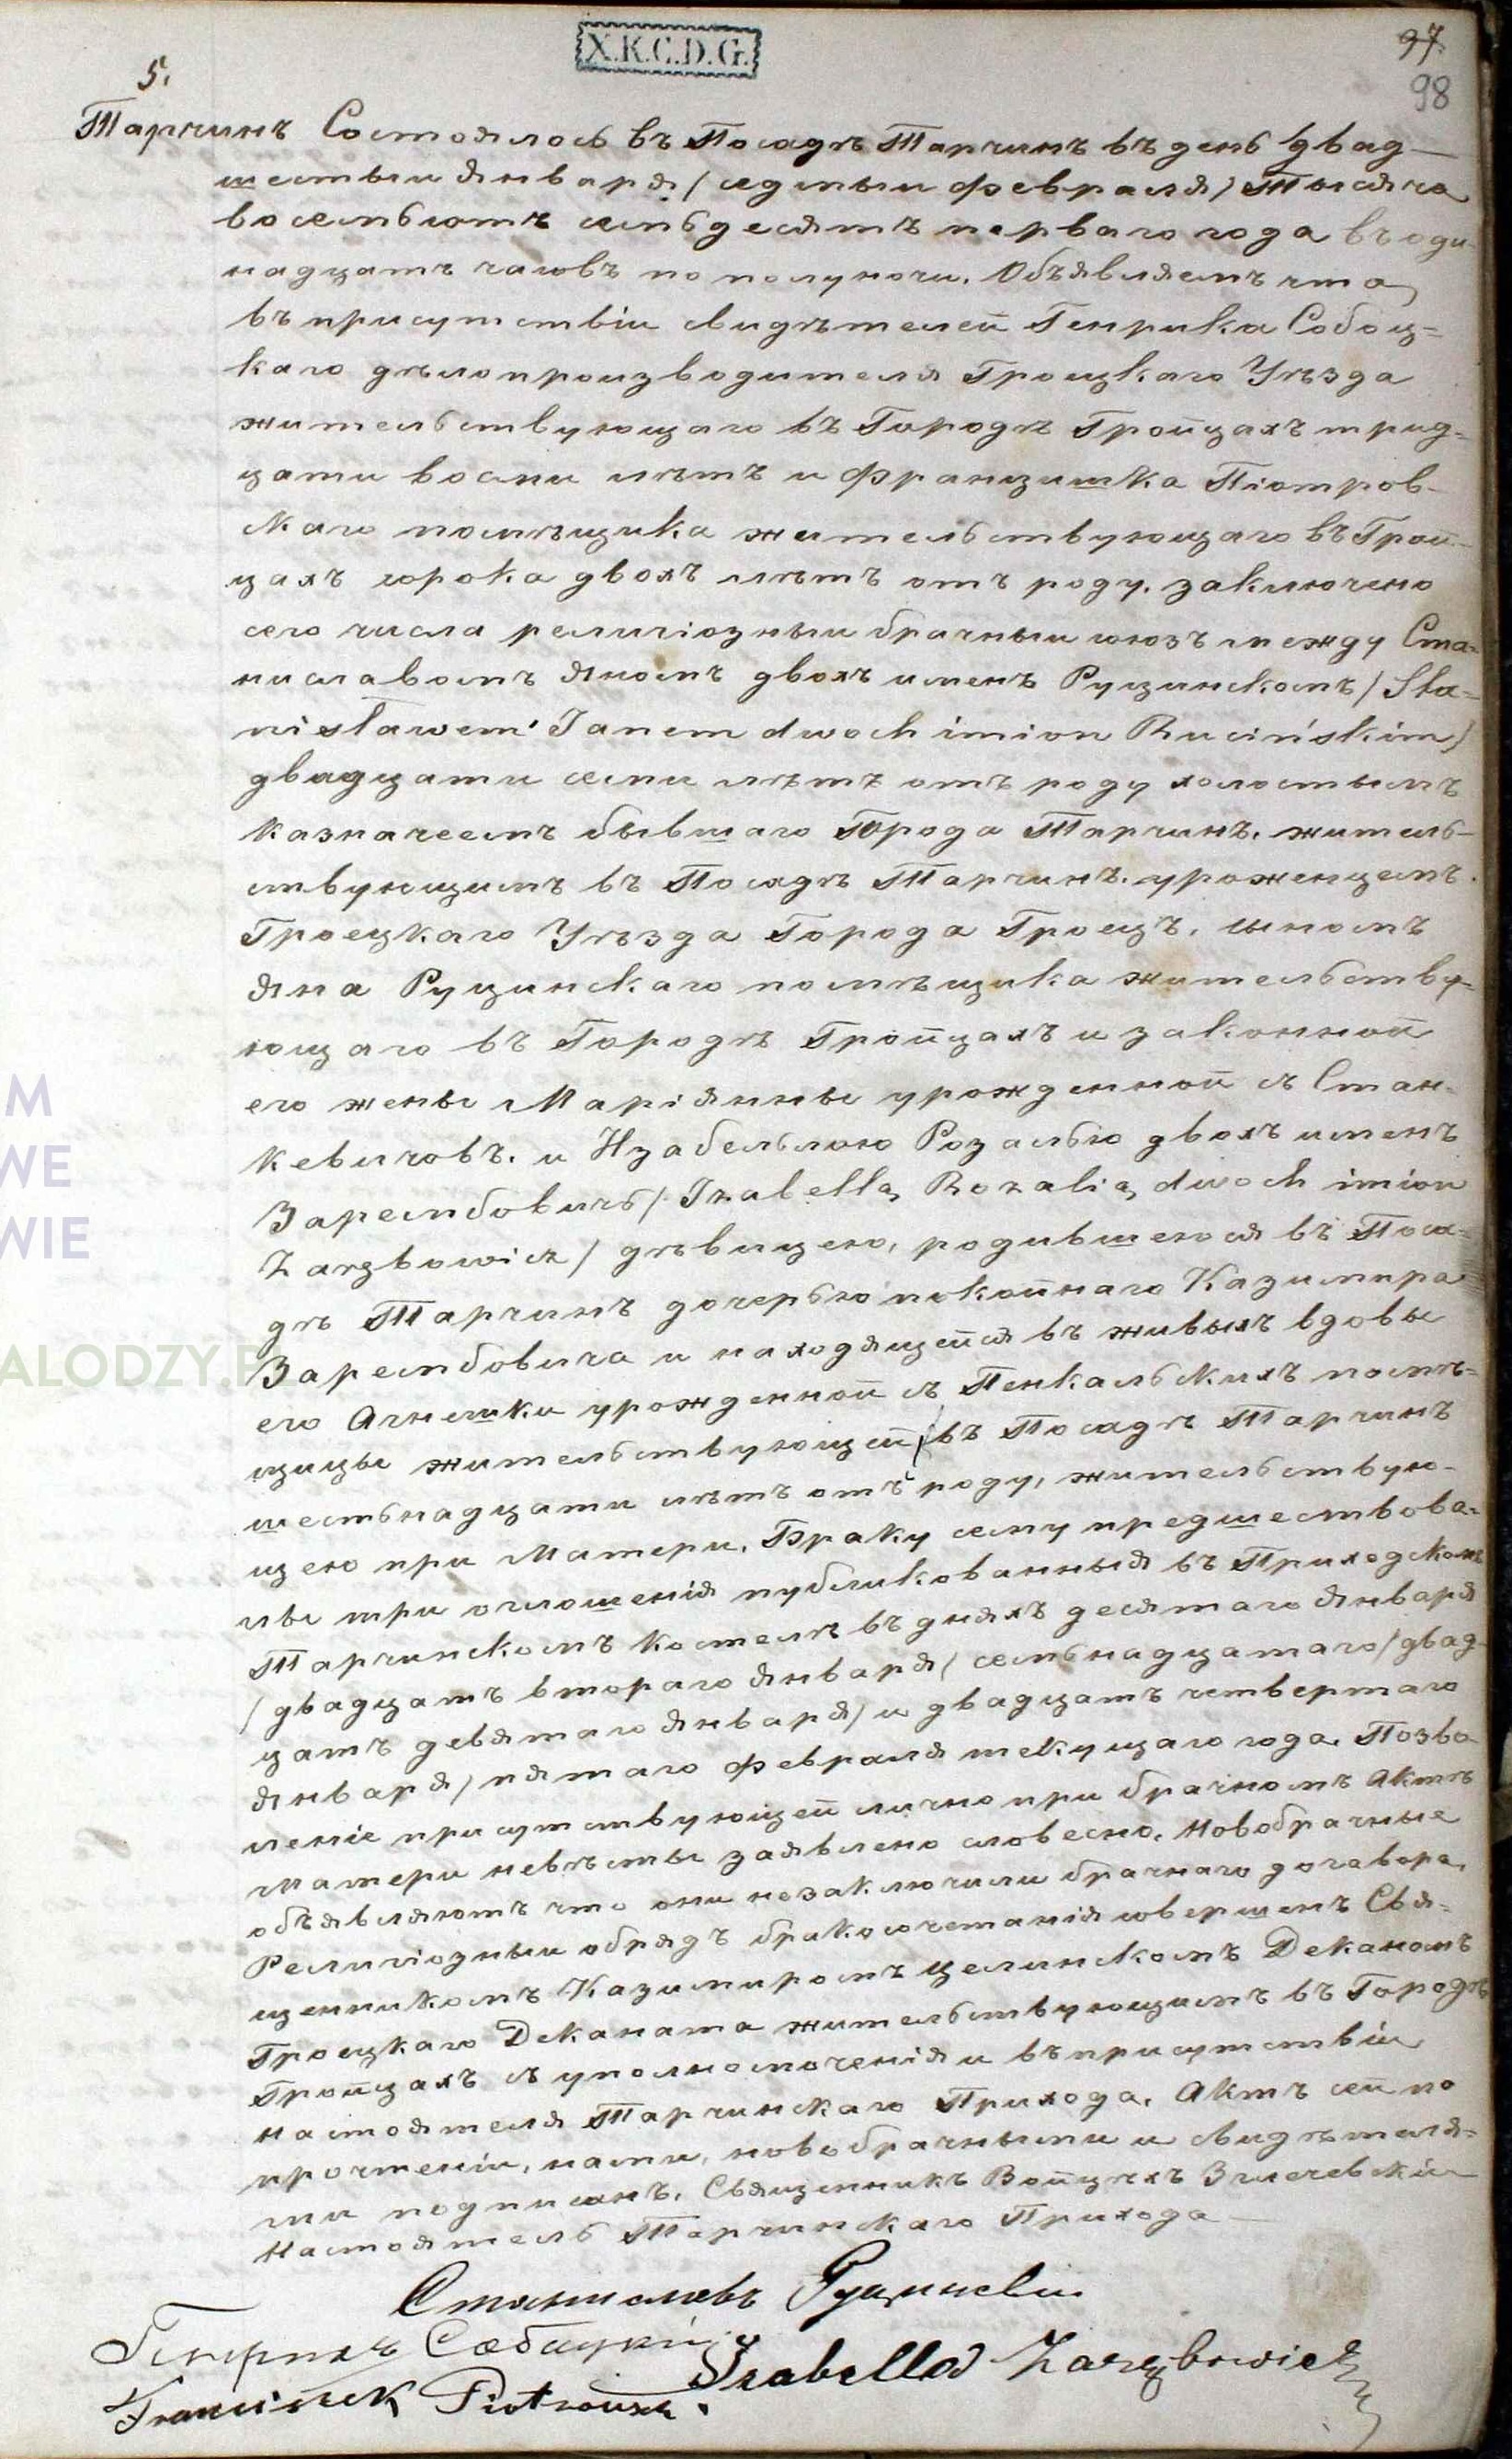 X.K.C.D.G.
97
98
5.
Тарчинъ Состоялось въ Посадѣ Тарчинѣ въ день двад-
шестый Января /седмый Февраля/ Тысяча
восемьсотъ семьдесятъ перваго года въ оди-
надцать часовъ по полуночи. Объявляемъ что
въ присутствіи свидѣтелей Генрика Собоц-
каго дѣлопроизводителя Гроецкаго Уѣзда
жительствующаго въ Городѣ Гройцахъ трид-
цати восми лѣтъ и Францишка Піотров-
скаго помѣщика жительствующаго въ Грой-
цахъ сорока двохъ лѣтъ отъ роду. заключено
сего числа религіозный брачный союзъ между Ста-
ниславомъ Яномъ двохъ именъ Руцинскомъ /Sta-
nisławem Janem dwoch imion Rucińskim/
двадцати семи лѣтъ отъ роду холостымъ
казначеемъ бывшаго Города Тарчинъ. житель-
ствующимъ въ Посадѣ Тарчинъ. уроженцемъ.
Гроецкаго Уѣзда Города Гроецъ. сыномъ
Яна Руцинскаго помѣщика жительству-
ющаго въ Городѣ Гройцахъ и законной
его жены Маріянны урожденной съ Стан-
кевичовъ. и Изабельлою Розальію двохъ именъ
Зарембовичъ /Izabellą Rozalią dwoch imion
Zarębowicz/ дѣвицею, родившеюся въ Поса-
дѣ Тарчинъ дочерью покойнаго Казимира
Зарембовича и находящейся въ живыхъ вдовы
его Агнешки урожденной съ Пенкальскихъ помѣ-
щицы жительствующей въ Посадѣ Тарчинъ
шестьнадцати лѣтъ отъ роду, жительствую-
щею при Матери. Браку сему предшествова-
лы три оглошенія публикованныя въ Приходскомъ
Тарчинскомъ костелѣ въ дняхъ десятаго Января
/двадцать втораго Января/ семьнадцатаго /двад-
цать девятаго Января/ и двадцать четвертаго
Января /пятаго Февраля текущаго года. Позво-
леніе присутствующей лично при брачномъ Актѣ
Матери невѣсты заявлено словесно. Новобрачные
объявляютъ что они незаключили брачнаго договора.
Религіозный обрядъ бракосочетанія совершенъ Свя-
щенникомъ Казимиромъ Целинскомъ Деканомъ
Гроецкаго Деканата жительствующимъ въ Городѣ
Гройцахъ съ уполномоченія и въ присутствіи
настоятеля Тарчинскаго Прихода. Актъ сей по
прочтеніи, нами, новобрачными и свидѣтеля-
ми подписанъ. Священникъ Войцѣхъ
Настоятель Тарчинскаго Прихода
Станиславъ Руцинскій
Генрикъ Собоцкій
Izabella Zarębowicz
Franciszek Piotrowski